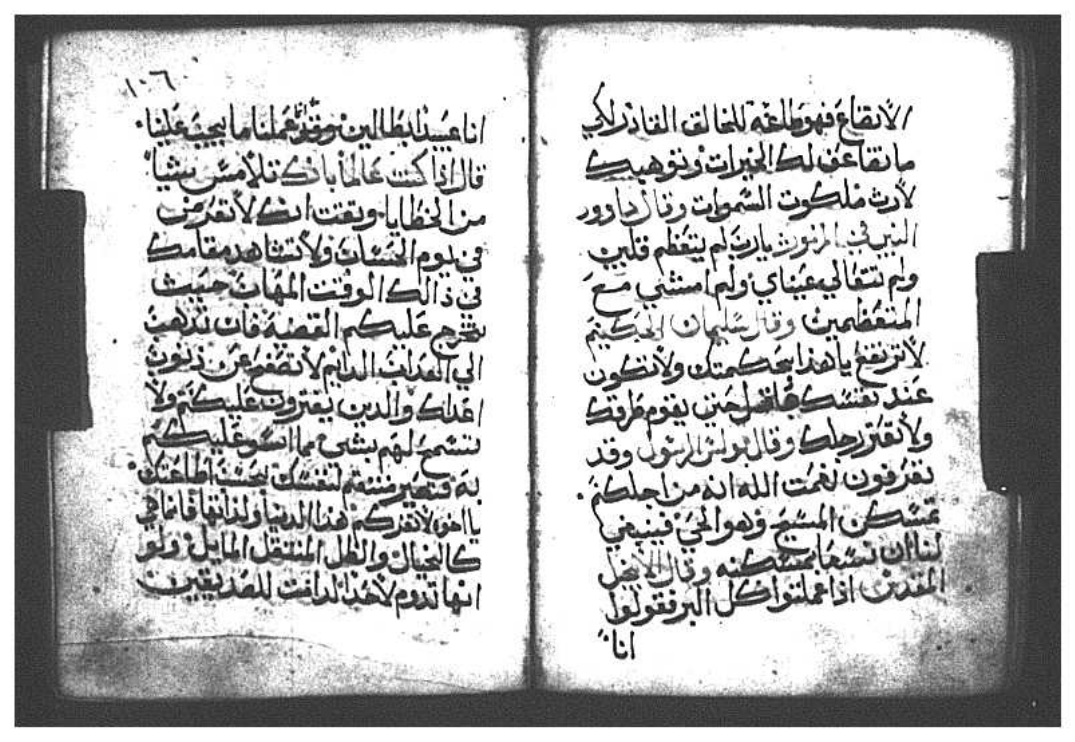 الاتضاع فهو طاعه للخالق القادر لكي
ما تضاعف لك الخيرات وتوهبك
لأرث ملكوت السموات وقال داوود
النبي في المزمور يارب لم يتعظم قلبي
ولم تتعالي عيناي ولم امشي مع
المتعظمين وقال سليمان الحكيم
لا ترتفع يا هذا بحكمتك ولا تكون
عند نفسك حتي يقوم طرقك
ولا تعتر رجلك وقال بولس الرسول وقد
تعرفون نعمت الله انه من اجلكم
تمسكن المسيح وهو الحي فينبغي
لنا ان بمسكنه وقال الانجيل
المقدس اذا عملتوا كل البر فقولوا
انا
١٠٦
انا عبيد بطالين وقد عملنا ما يجب علينا
قال اذا كنت عالما بانك تلامس شيا
من الخطايا وتقت انك لا تقدر من
في يوم الحساب ولا تشاهد مقامك
في ذالك الوقت المهاب حيث
تخرج عليكم القضيه فان تدهب
الي العداب الدايم لا تصفح عن دنوب
اعداك والدين يفترون عليكم ولا
تسمح لهم بشي مما
به فتصير لنفسك بحسب
يا اخوه لا تغركم هذا الدنيا ولذاتها فانما هي
كالخيال والظل المنتقل المايل ولو
انها تدوم لأحد لدامت للصديقين